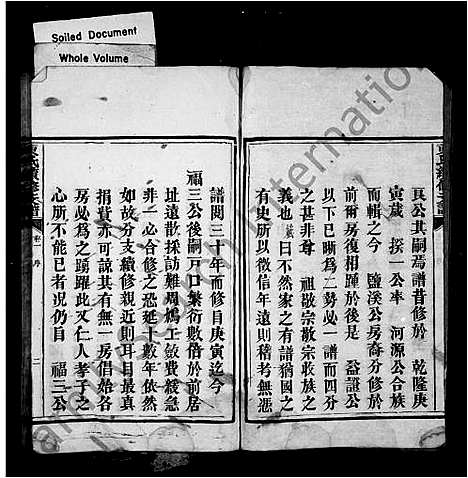 Soiled Document
Whole Volume
良公其嗣焉譜昔修於　乾隆庚
寅歲　探一公率　河源公合族
而輯之今　鹽溪公房裔分修於
前爾房復相踵於後是　益證公
以下已斷為二勢必一譜而四分
之甚非尊　祖敬宗敬宗收族之
義也　曰不然家之有譜猶國之
有史所以徵信年遠則稽考無憑
譜閱三十年而修自庚寅迄今
福三公後嗣戶口繁衍數倍於前居
址遠散採訪難周鳩工斂費緩急
非一必合修之恐延十數年依然
如故分支續修親近則耳目最真
捐貲亦可諒其有無一房倡始各
房必為之踴躍此又仁人孝子之
心所不能已者况仍自　福三公
卷一
序
二